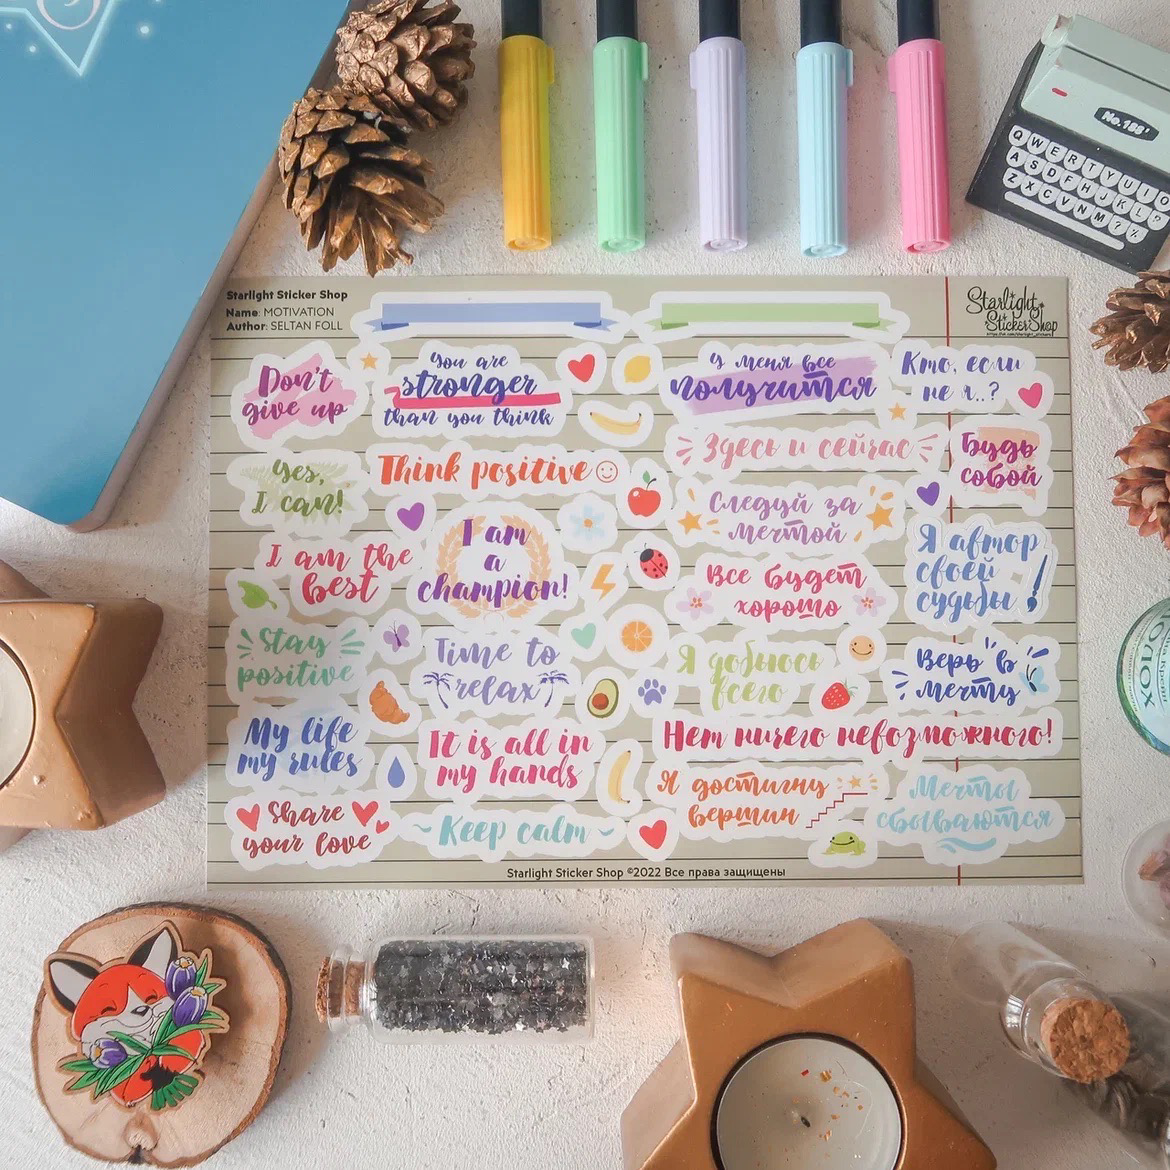 No.188'
QWERTYUIO
ASDFHJKLP
ZXCVNM?%
Starlight Sticker Shop
Name: MOTIVATION
Author: SELTAN FOLL
Starlight
StickerShop
Don't
give up
You are
stronger
than you think
У меня все
получится
Кто, если
не я..?
Yes,
I can!
Think positive
Здесь и сейчас
Будь
собой
I am the
best
I am
a
champion!
Следуй за
мечтой
Я автор
своей
судьбы
Все будет
хорошо
Stay
positive
Time to
relax
Я добьюсь
всего
Верь в
мечту
My life
my rules
It is all in
my hands
Нет ничего невозможного!
Я достигну
вершин
Мечты
сбываются
Share
your love
~Keep calm~
Starlight Sticker Shop ©2022 Все права защищены